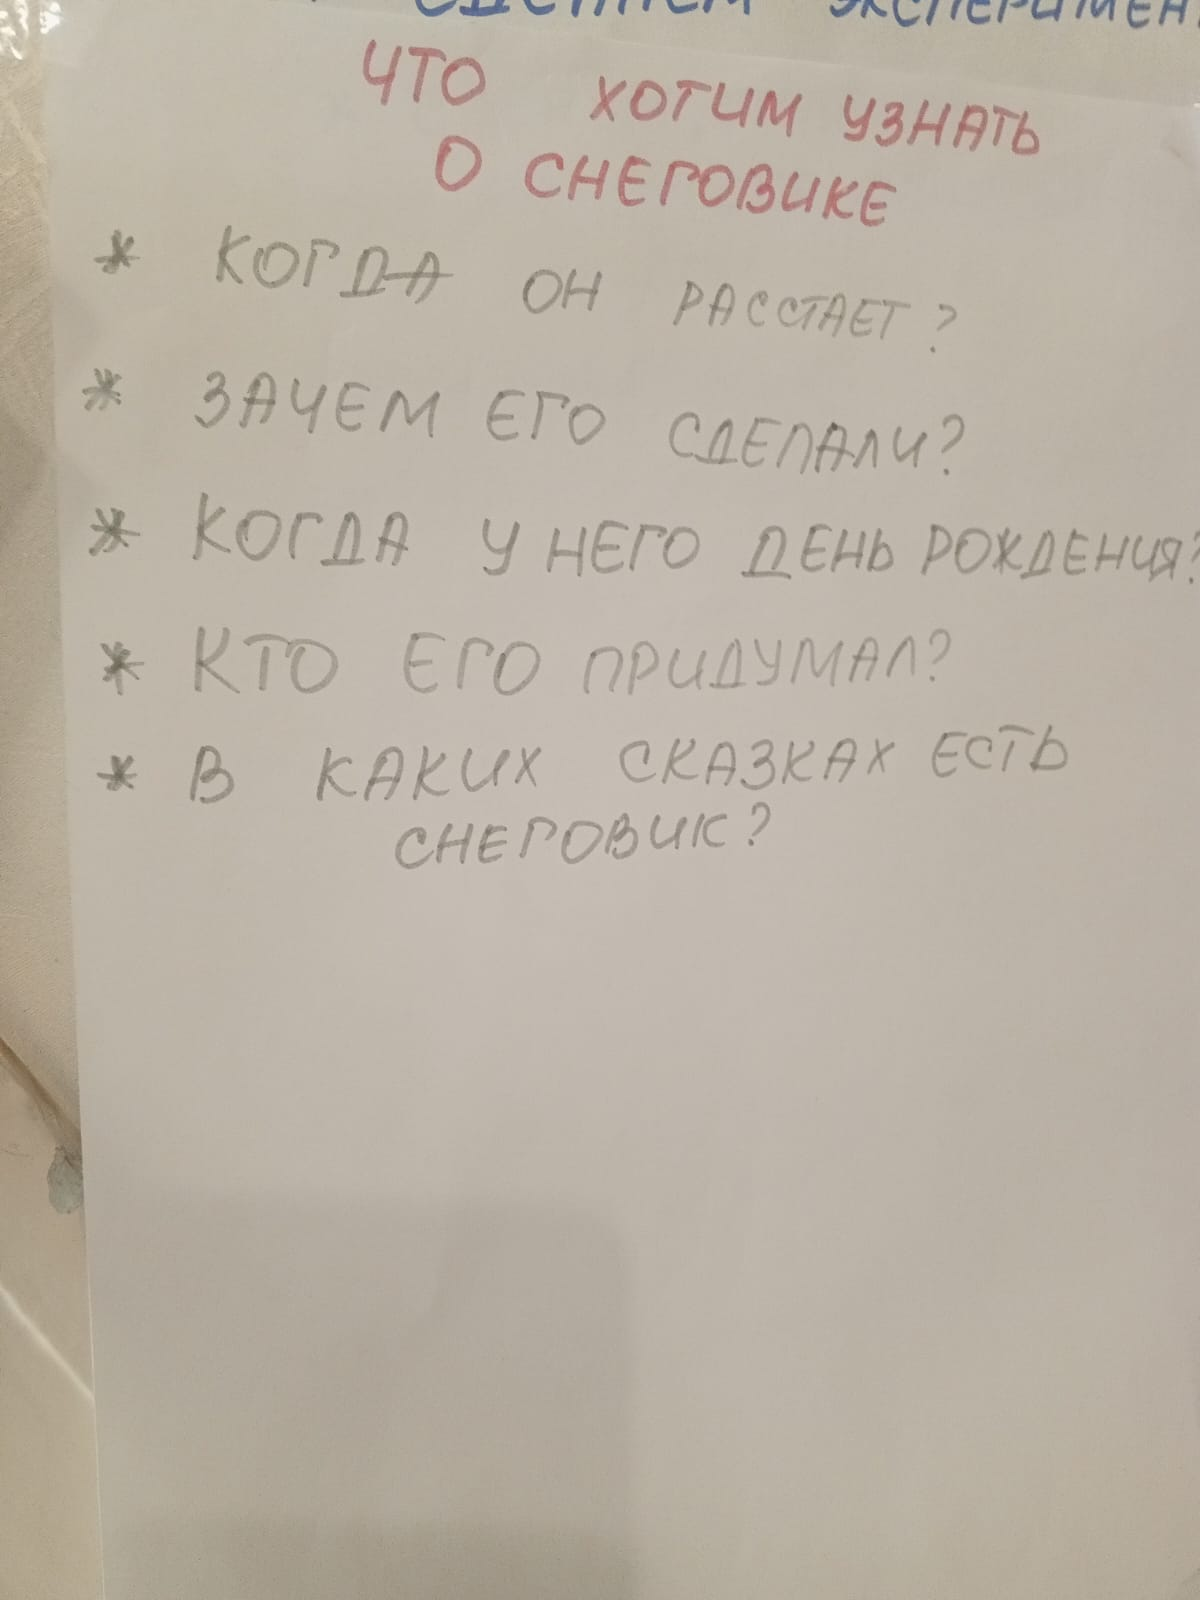 СДЕЛАЕМ ЭКСПЕРИМЕН
ЧТО ХОТИМ УЗНАТЬ
О СНЕГОВИКЕ
* КОГДА ОН РАССТАЕТ?
* ЗАЧЕМ ЕГО СДЕЛАЛИ?
* КОГДА У НЕГО ДЕНЬ РОЖДЕНИЯ?
* КТО ЕГО ПРИДУМАЛ?
* В КАКИХ СКАЗКАХ ЕСТЬ
СНЕГОВИК?